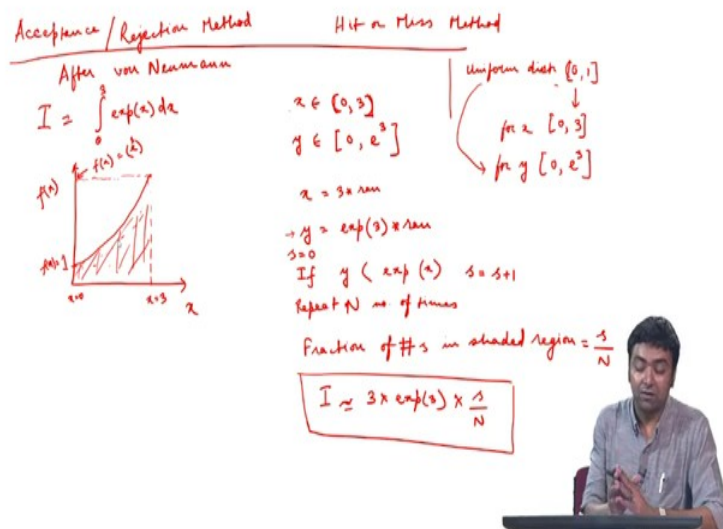 Acceptance / Rejection Method
Hit or Miss Method
After von Neumann
I = ∫₀³ exp(x) dx
f(x)
f(x)=1
x=0
x=3
x
x ∈ [0, 3]
y ∈ [0, e³]
x = 3 * ran
→ y = exp(3) * ran
s=0
If y < exp(x) s = s+1
Repeat N no. of times
Fraction of # s in shaded region = s/N
I ≈ 3 × exp(3) × s/N
Uniform dist. [0, 1]
↓
for x [0, 3]
for y [0, e³]